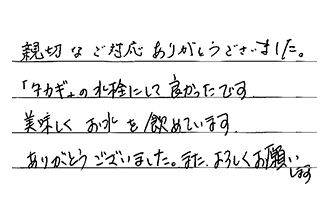 親切なご対応ありがとうございました。
「タカギ」の水栓にして良かったです
美味しくお水を飲めています.
ありがとうございました。また、よろしくお願いします